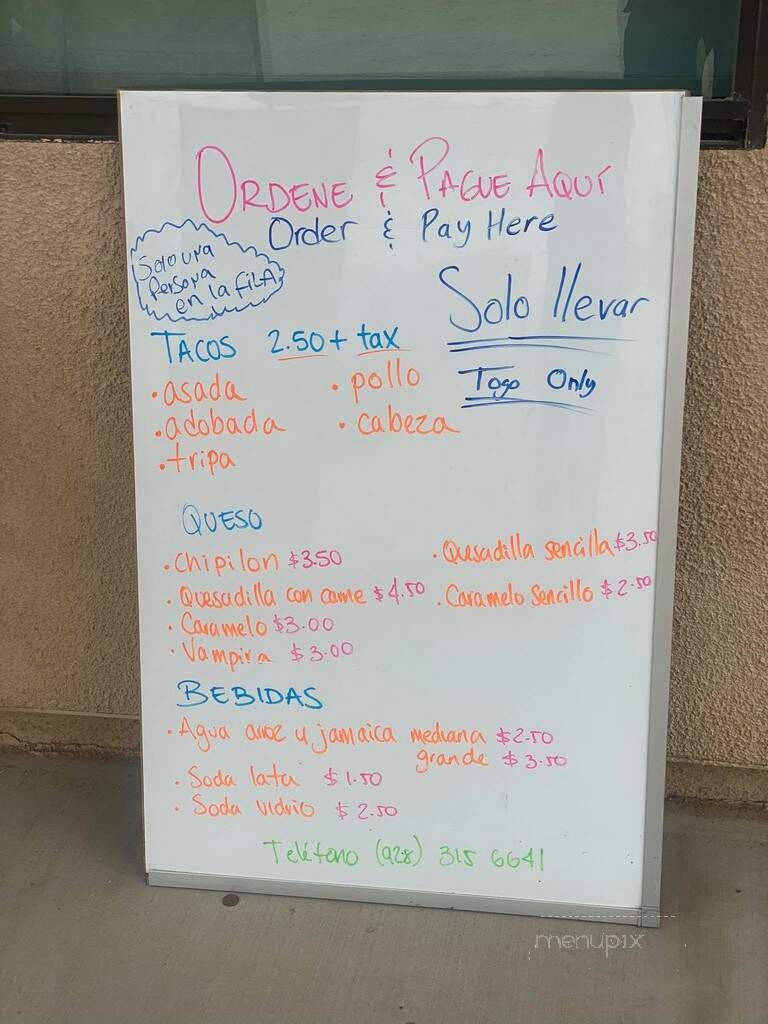 ORDENE & PAGUE AQUÍ
Order & Pay Here
Solo una
Persona
en la FILA
Solo llevar
Togo Only
TACOS 2.50 + tax
• asada
• adobada
• tripa
• pollo
• cabeza
QUESO
• Chipilon $3.50
• Quesadilla con carne $4.50
• Caramelo $3.00
• Vampira $3.00
• Quesadilla sencilla $3.50
• Caramelo Sencillo $2.50
BEBIDAS
• Agua arroz y jamaica mediana $2.50
grande $3.50
• Soda lata $1.50
• Soda vidrio $2.50
Teléfono (928) 315 6641
menupix